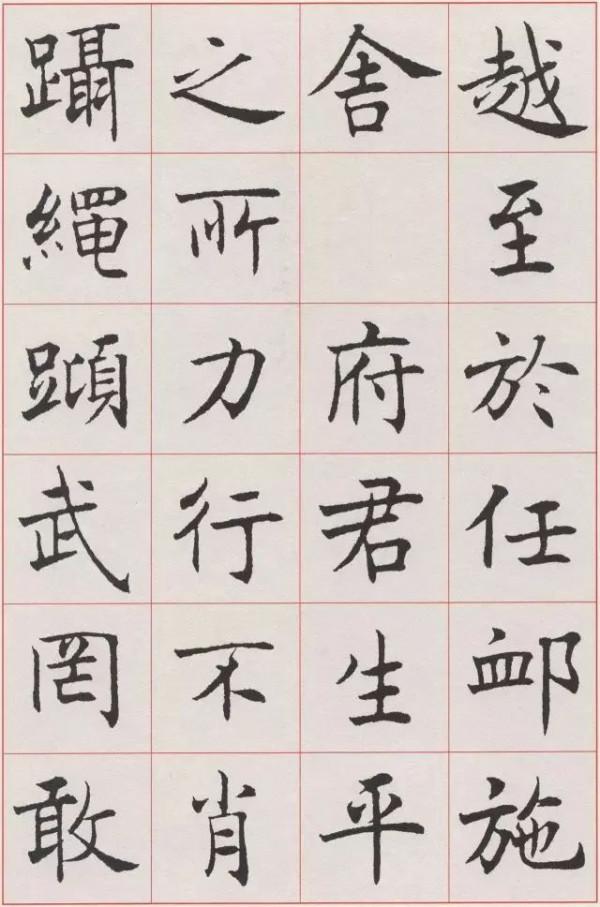 越至於任卹施
舍府君生平
之所力行不肖
躡繩蹞武罔敢